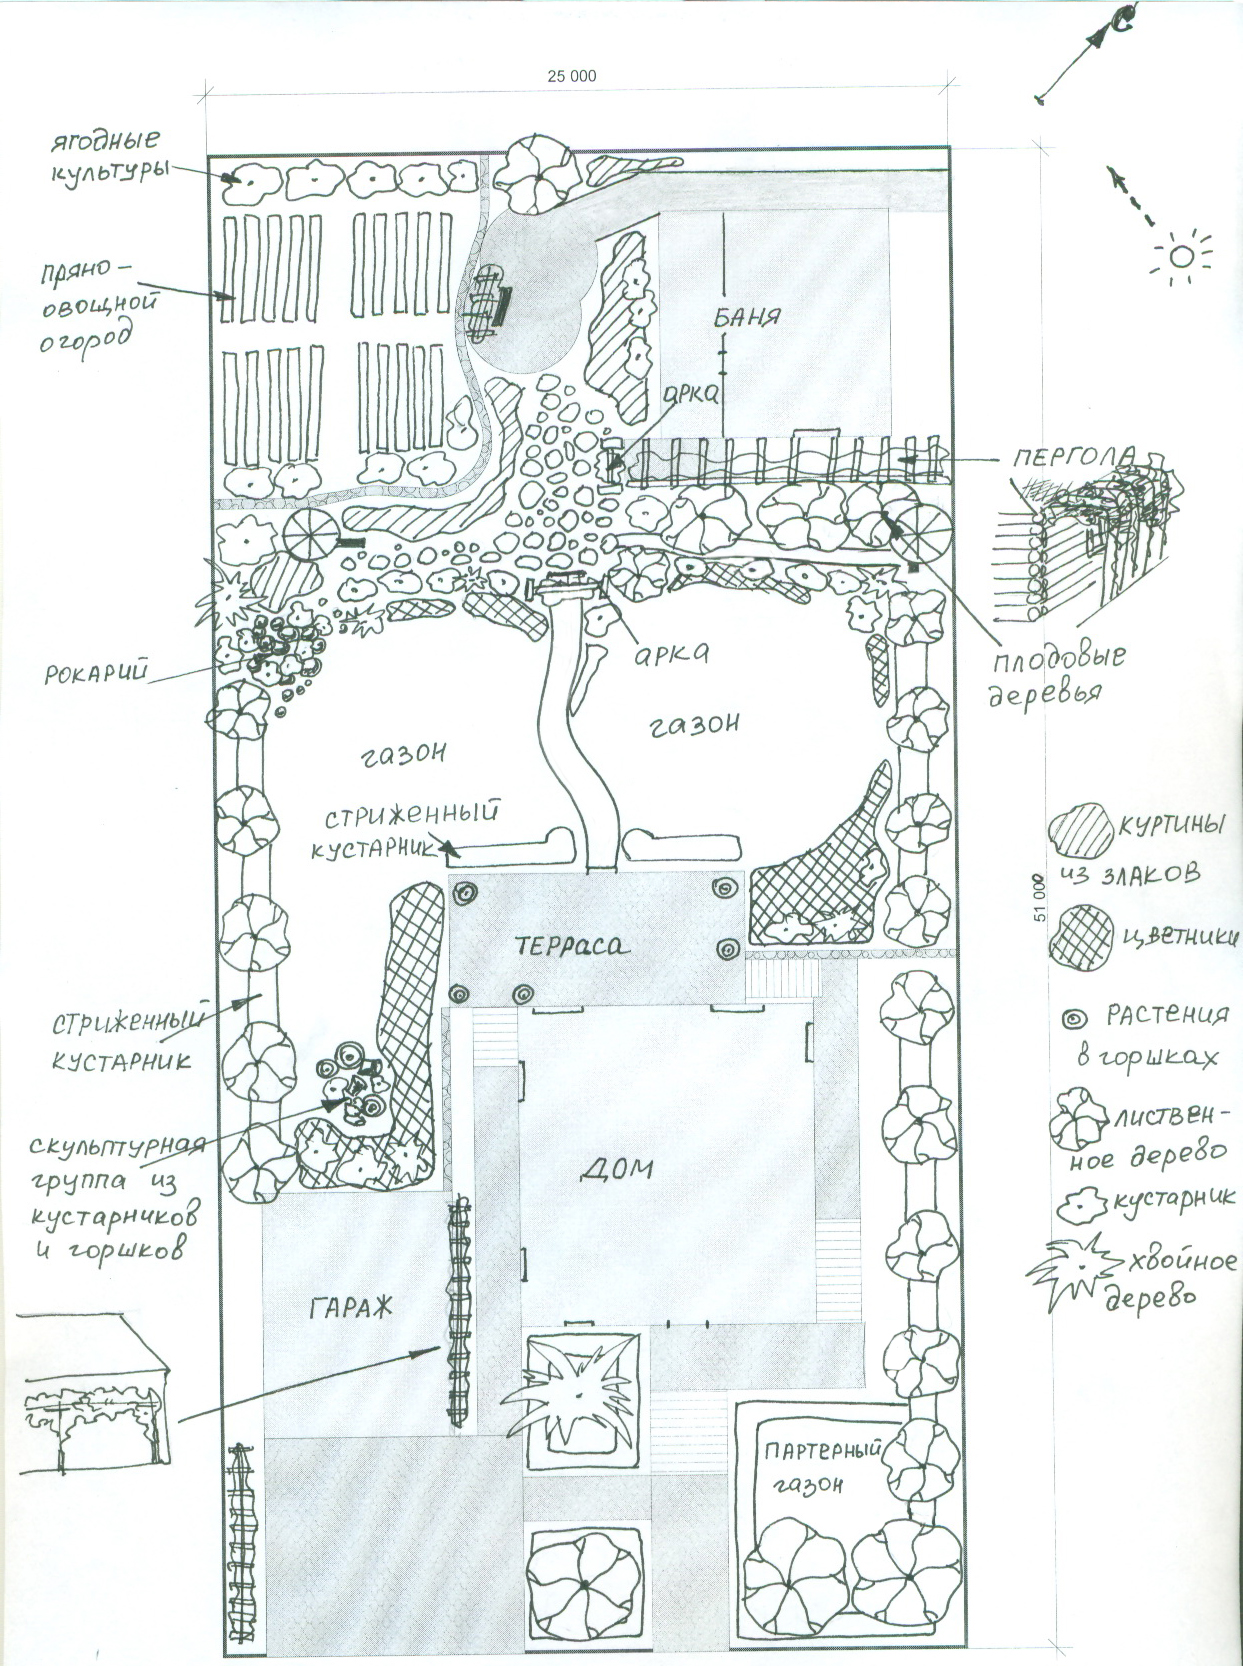 С
25 000
ЯГОДНЫЕ
КУЛЬТУРЫ
ПРЯНО-
ОВОЩНОЙ
ОГОРОД
БАНЯ
АРКА
ПЕРГОЛА
АРКА
ПЛОДОВЫЕ
ДЕРЕВЬЯ
РОКАРИЙ
ГАЗОН
ГАЗОН
СТРИЖЕННЫЙ
КУСТАРНИК
КУРТИНЫ
ИЗ ЗЛАКОВ
51 000
ЦВЕТНИКИ
ТЕРРАСА
РАСТЕНИЯ
В ГОРШКАХ
СТРИЖЕННЫЙ
КУСТАРНИК
ЛИСТВЕН-
НОЕ ДЕРЕВО
СКУЛЬПТУРНАЯ
ГРУППА ИЗ
КУСТАРНИКОВ
И ГОРШКОВ
ДОМ
КУСТАРНИК
ХВОЙНОЕ
ДЕРЕВО
ГАРАЖ
ПАРТЕРНЫЙ
ГАЗОН